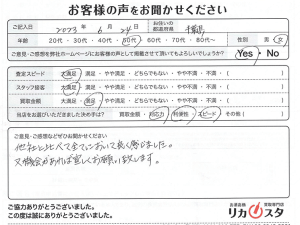 お客様の声をお聞かせください
ご記入日 2023年 6月 24日 お住いの都道府県
年齢 20代・30代・40代・50代・60代・70代・80代〜 性別 男・女
ご意見・ご感想を弊社ホームページにお客様の声として掲載させて頂いてもよろしいでしょうか? Yes・No
査定スピード 大満足・満足・やや満足・どちらでもない・やや不満・不満・( )
スタッフ接客 大満足・満足・やや満足・どちらでもない・やや不満・不満・( )
買取金額 大満足・満足・やや満足・どちらでもない・やや不満・不満・( )
当店をお選びいただきました決め手は? 買取金額・対応力・利便性・スピード・その他( )
ご意見・ご感想などぜひお聞かせください
他社と比べて全てにおいて良く感じました。
又機会があれば宜しくお願い致します。
ご協力ありがとうございました。
この度は誠にありがとうございました。
リカスタ